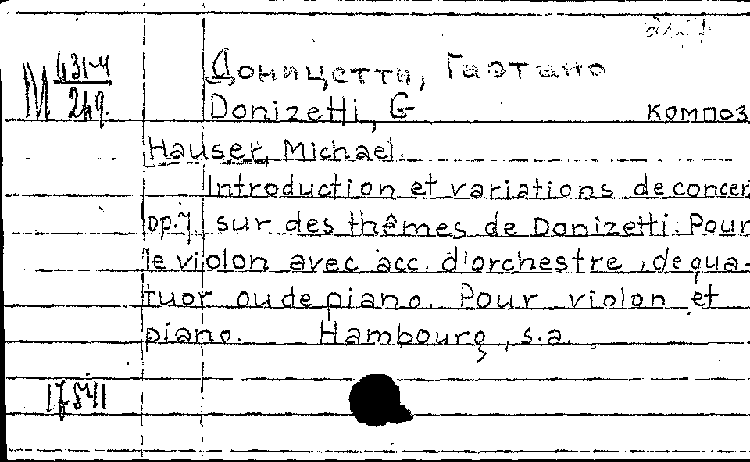 Доницетти, Гаэтано
Donizetti, G
КОМПОЗ
Hauser, Michael.
Introduction et variations de concer
op.7. sur des thêmes de Donizetti. Pour
le violon avec acc. d'orchestre, de qua-
tuor ou de piano. Pour violon et
piano. Hambourg, s.a.